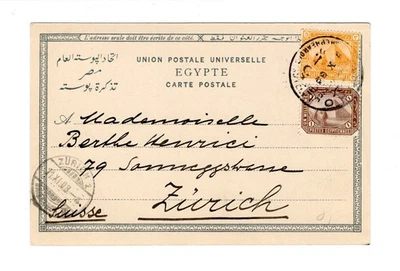 L'adresse seule doit être écrite de ce côté.
اتحاد البوستة العام
مصر
تذكرة بوستة
UNION POSTALE UNIVERSELLE
EGYPTE
CARTE POSTALE
A Mademoiselle
Berthe Henrici
79 Sonneggstrasse
Zürich
Suisse
ZÜRICH
POSTES EGYPTIENNES
1
1